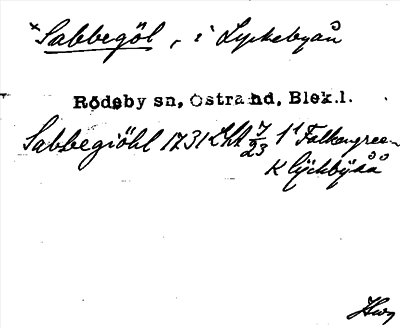 × Sabbegöl, i Lyckebyån
Rödeby sn, Östra hd, Blek.l.
Sabbegiöhl 1731 Lht 7/23 1¹ Falkengreen
K lÿckbÿåå